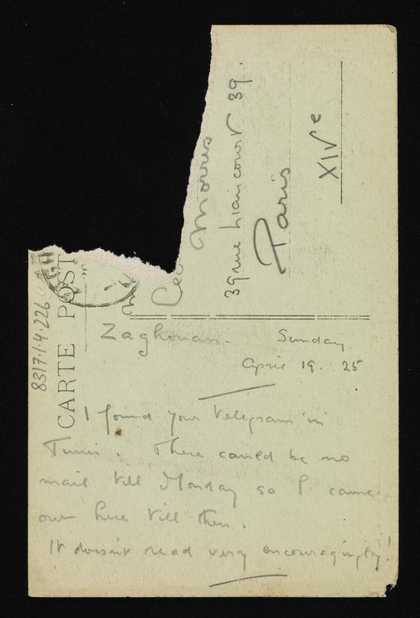 Cec Morris
39 rue Liancourt 39.
Paris
XIVe
CARTE POST
8317.1.4.226
Zaghouan. Sunday
April 19. 25
I found your telegram in
Tunis. There could be no
mail till Monday so I came
over here till then.
It doesn't read very encouragingly!